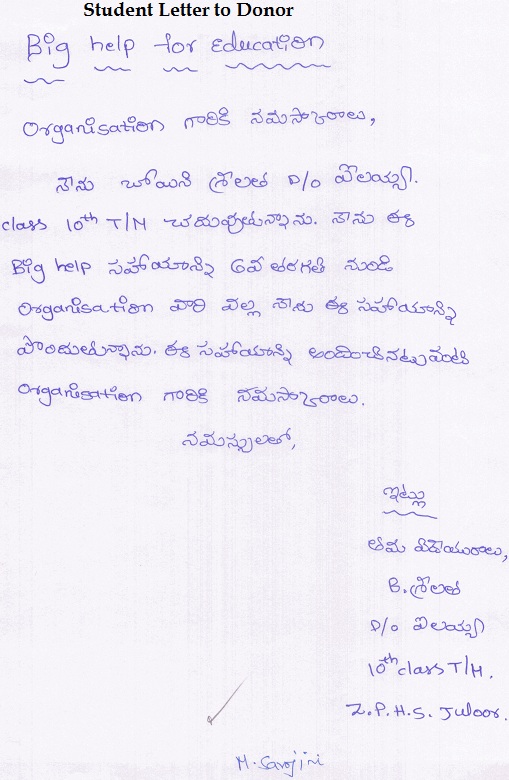 Student Letter to Donor
Big help for education
Organisation గారికి నమస్కారాలు,
నేను బోయిని శ్రీలత D/o ఐలయ్య.
class 10th T/M చదువుతున్నాను. నేను ఈ
Big help సహాయాన్ని 6వ తరగతి నుండి
Organisation వారి వల్ల నేను ఈ సహాయాన్ని
పొందుతున్నాను. ఈ సహాయాన్ని అందించినటువంటి
Organisation గారికి నమస్కారాలు.
నమస్సులతో,
ఇట్లు
తమ విదేయురాలు,
B. శ్రీలత
D/o ఐలయ్య
10th class T/M.
Z.P.H.S. Juloor.
M. Sarojini